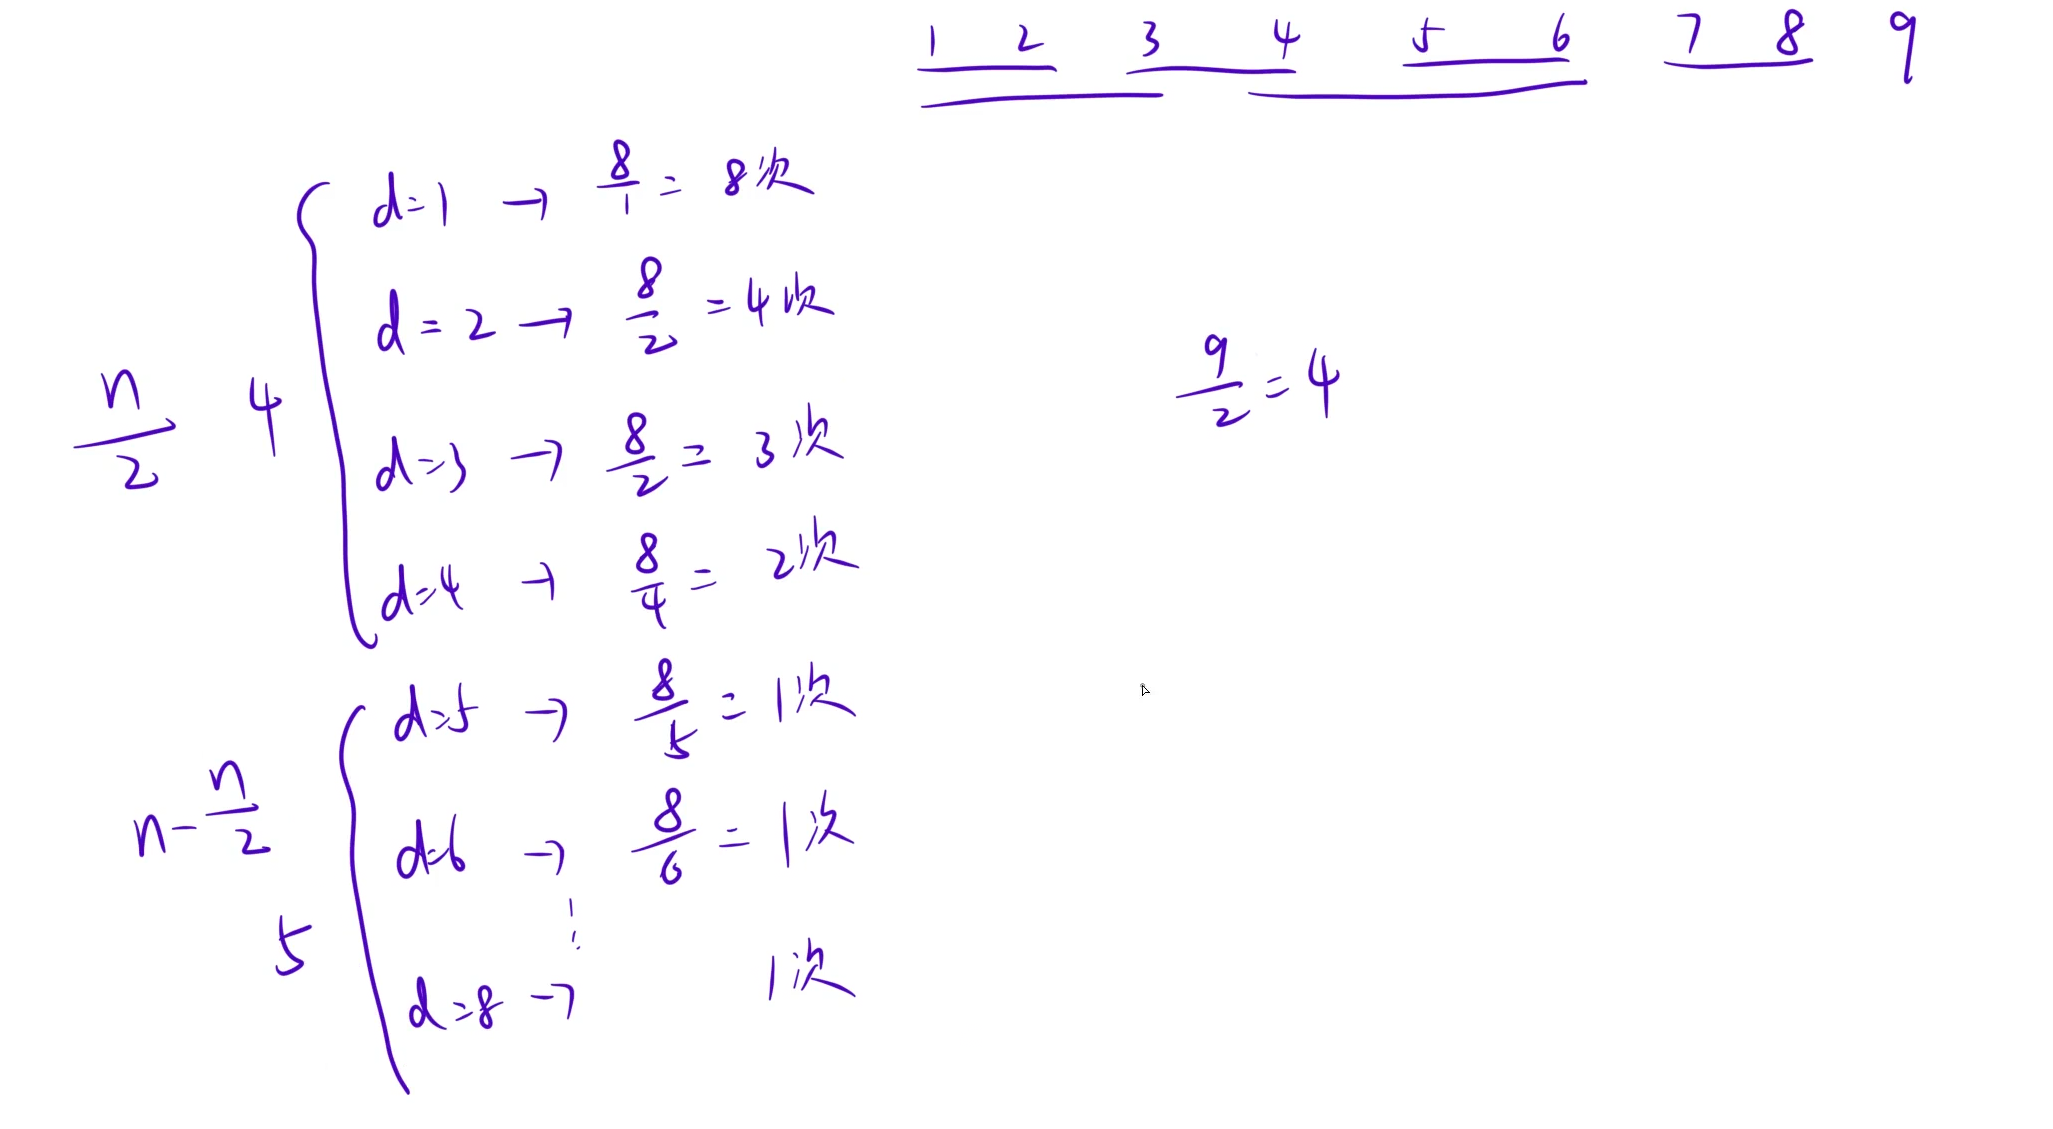 1 2 3 4 5 6 7 8 9
d=1 → 8/1 = 8次
d=2 → 8/2 = 4次
d=3 → 8/2 = 3次
d=4 → 8/4 = 2次
n/2 4
9/2 = 4
d=5 → 8/5 = 1次
d=6 → 8/6 = 1次
⋮
d=8 → 1次
n - n/2
5